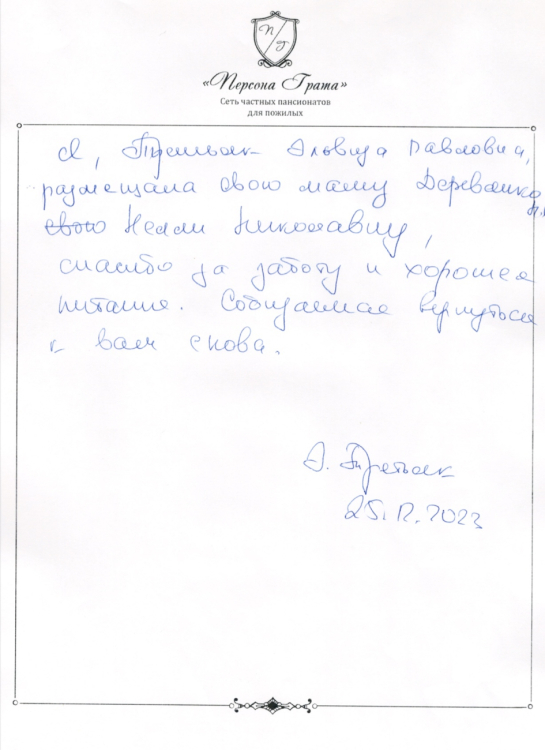 П Г
«Персона Грата»
Сеть частных пансионатов
для пожилых
Я, Третьяк Павловна,
размещала свою маму Деревянко
Н.Н.
свою Нелли Николавну,
спасибо за заботу и хорошее
питание. Собираемся вернуться
к вам снова.
Э. Третьяк
25.12.2023